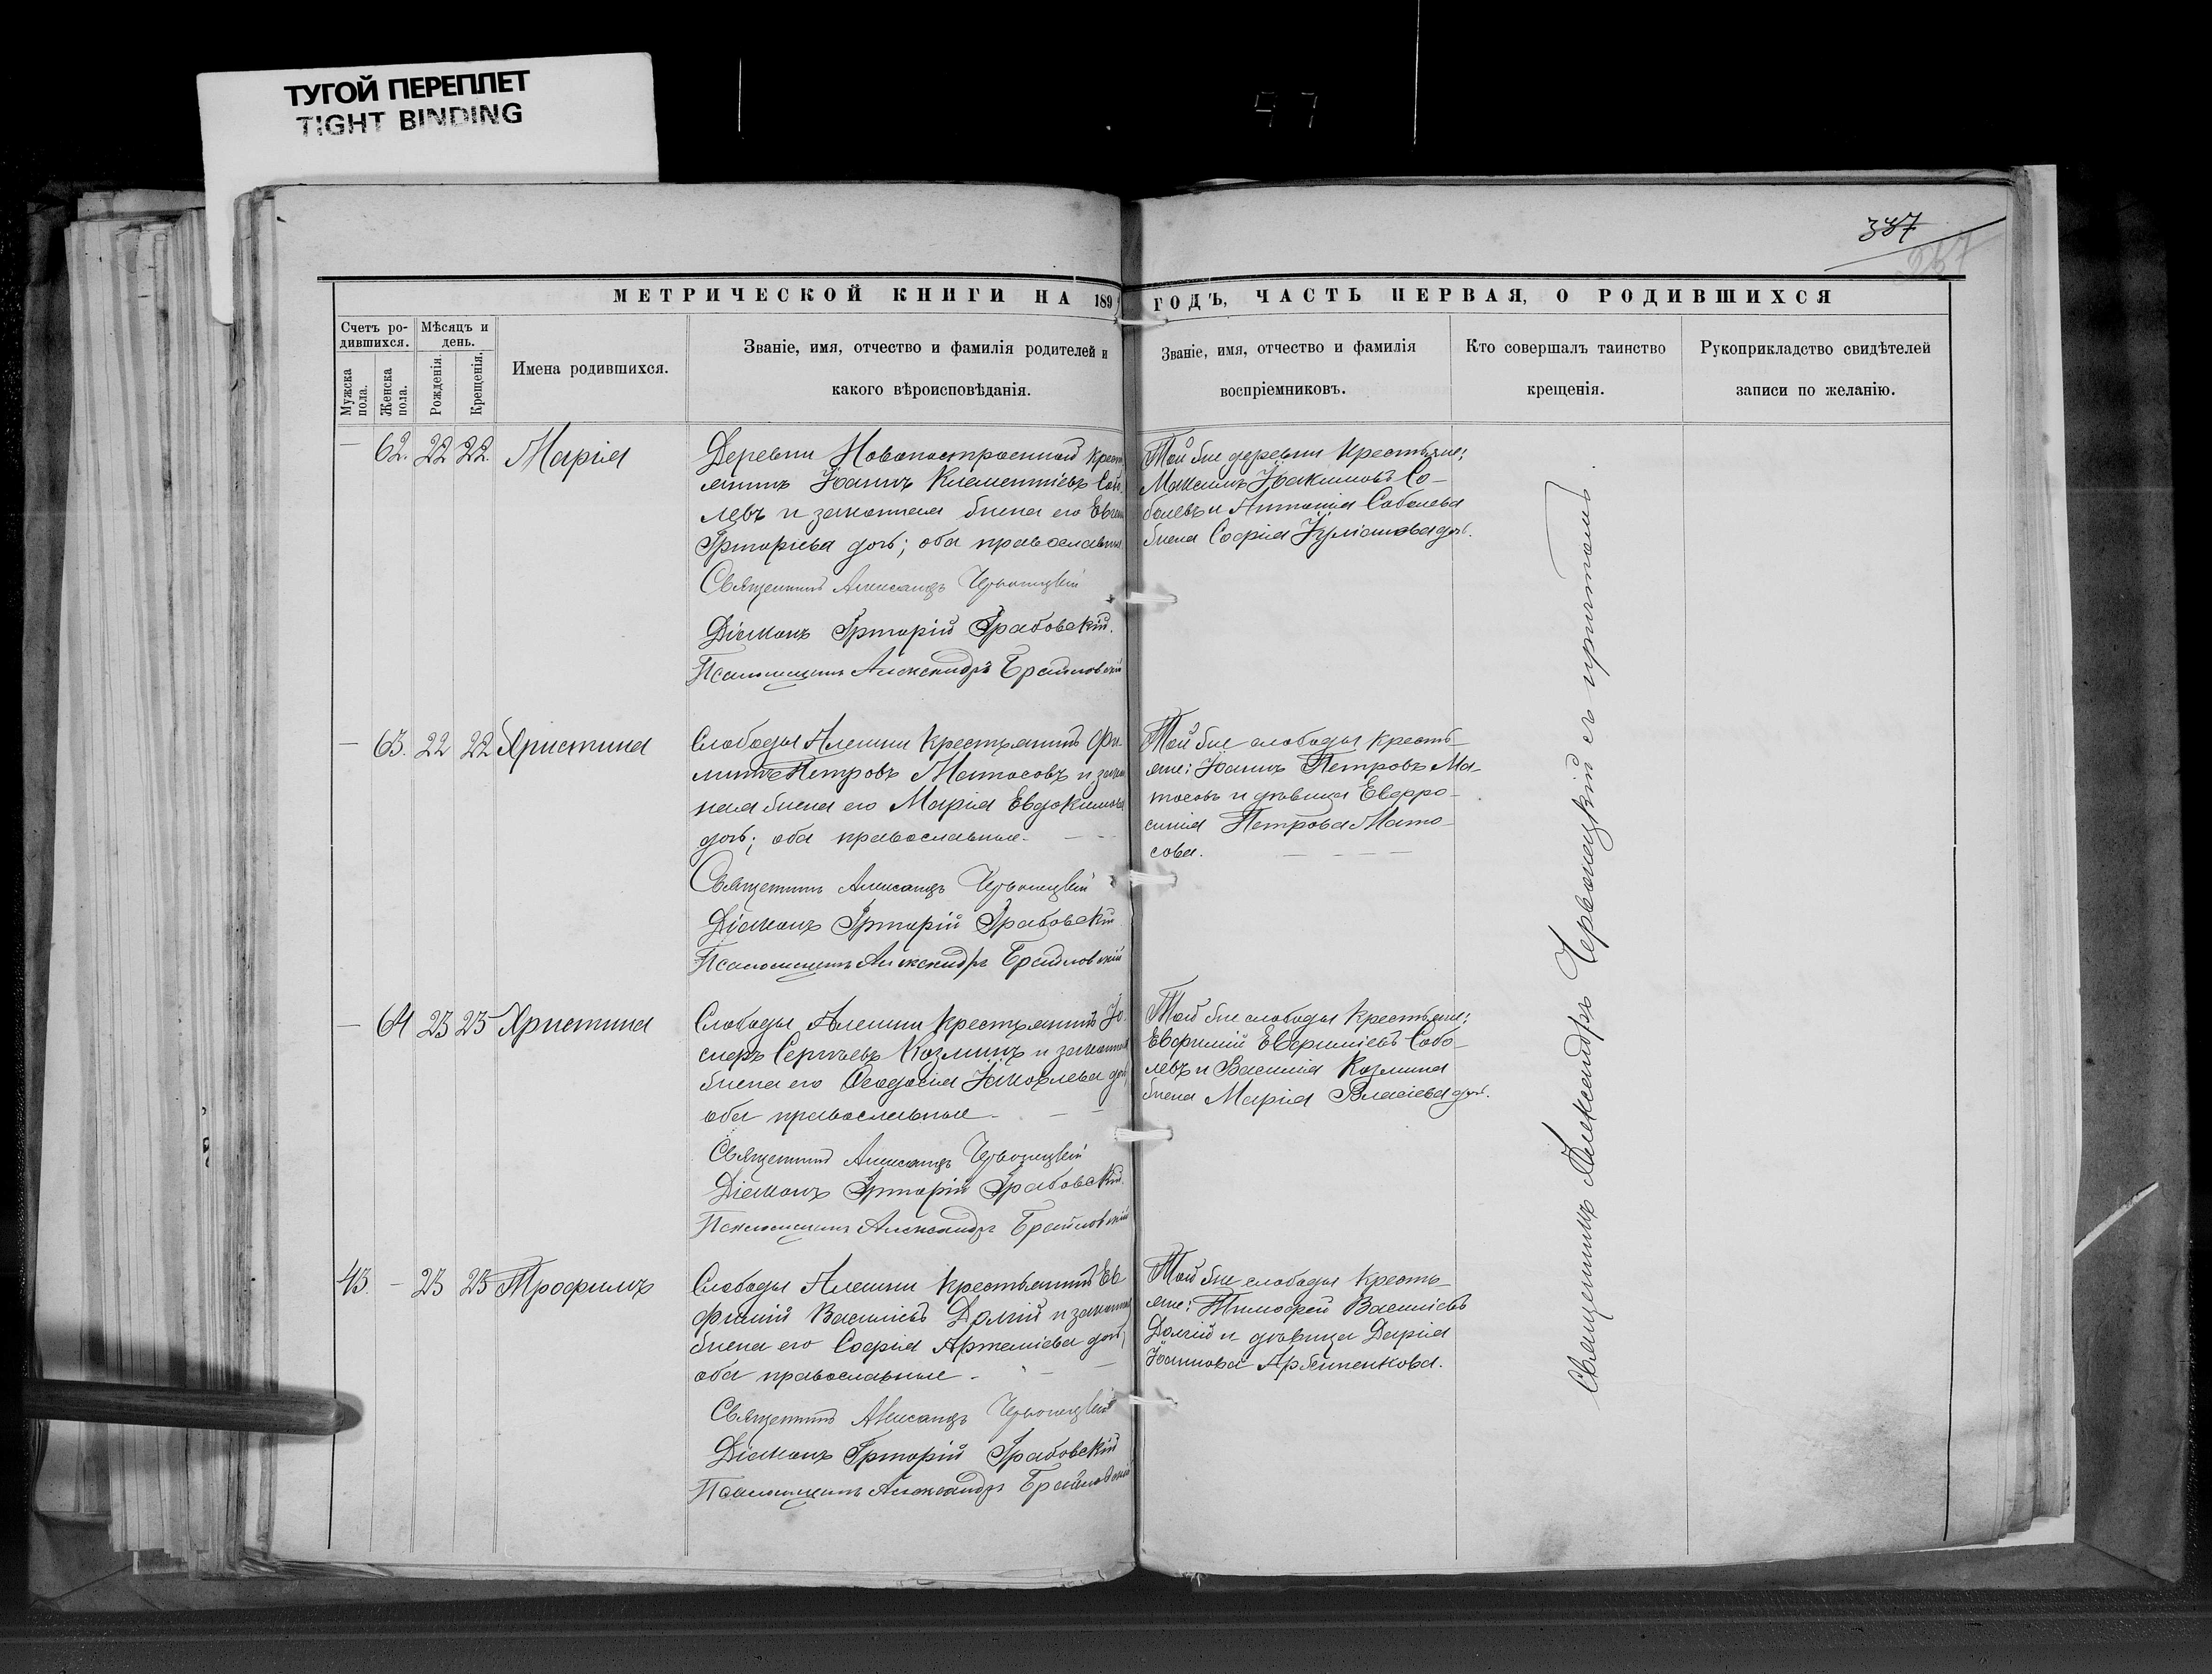 ТУГОЙ ПЕРЕПЛЕТ
TIGHT BINDING
47
347
МЕТРИЧЕСКОЙ КНИГИ НА 189 ГОДЪ, ЧАСТЬ ПЕРВАЯ, О РОДИВШИХСЯ
Счетъ ро-
дившихся.
Мужска
пола.
Женска
пола.
Мѣсяцъ и
день.
Рожденія.
Крещенія.
Имена родившихся.
Званіе, имя, отчество и фамилія родителей и
какого вѣроисповѣданія.
Званіе, имя, отчество и фамилія
воспріемниковъ.
Кто совершалъ таинство
крещенія.
Рукоприкладство свидѣтелей
записи по желанію.
— 62. 22 22. Марія
Деревни Новопостроенной крест
янинъ Іоаннъ Климентіевъ Собо
левъ и законная жена его
Григоріева дочь; оба православные
Священникъ Александръ Червонецкій
Діаконъ Григорій Грабовскій.
Псаломщикъ Александръ Браиловскій
Той же деревни крестьяне:
Максимъ Іоакимовъ Со-
болевъ и Антонія Соболева
жена Софія Іуліанова дочь.
— 63. 22 22 Христина
Слободы Алешни крестьянинъ Фи-
липпъ Петровъ Матосовъ и закон
ная жена его Марія Евдокимова
дочь; оба православные. —
Священникъ Александръ Червонецкій
Діаконъ Григорій Грабовскій
Псаломщикъ Александръ Браиловскій
Той же слободы кресть-
яне: Іоаннъ Петровъ Ма-
тосовъ и дѣвица Евфро-
синія Петрова Мато-
сова. — — —
— 64 23 25 Христина
Слободы Алешни крестьянинъ Іо-
сифъ Сергѣевъ Козминъ и законная
жена его Ѳеодосія Іаковлева доч
оба православные — —
Священникъ Александръ Червонецкій
Діаконъ Григорій Грабовскій.
Псаломщикъ Александръ Браиловскій
Той же слободы крестьяне:
Евфимій Евфиміевъ Собо-
левъ и Василія Козмина
жена Марія Власіева дочь.
43. — 23 25 Трофимъ
Слободы Алешни крестьянинъ Ев-
фимій Василіевъ Долгій и законная
жена его Софія Артеміева дочь,
оба православные — —
Священникъ Александръ Червонецкій
Діаконъ Григорій Грабовскій
Псаломщикъ Александръ Браиловскій
Той же слободы кресть-
яне: Тимофей Василіевъ
Долгій и дѣвица Дарія
Іоаннова
Священникъ Александръ Червонецкій съ причтомъ